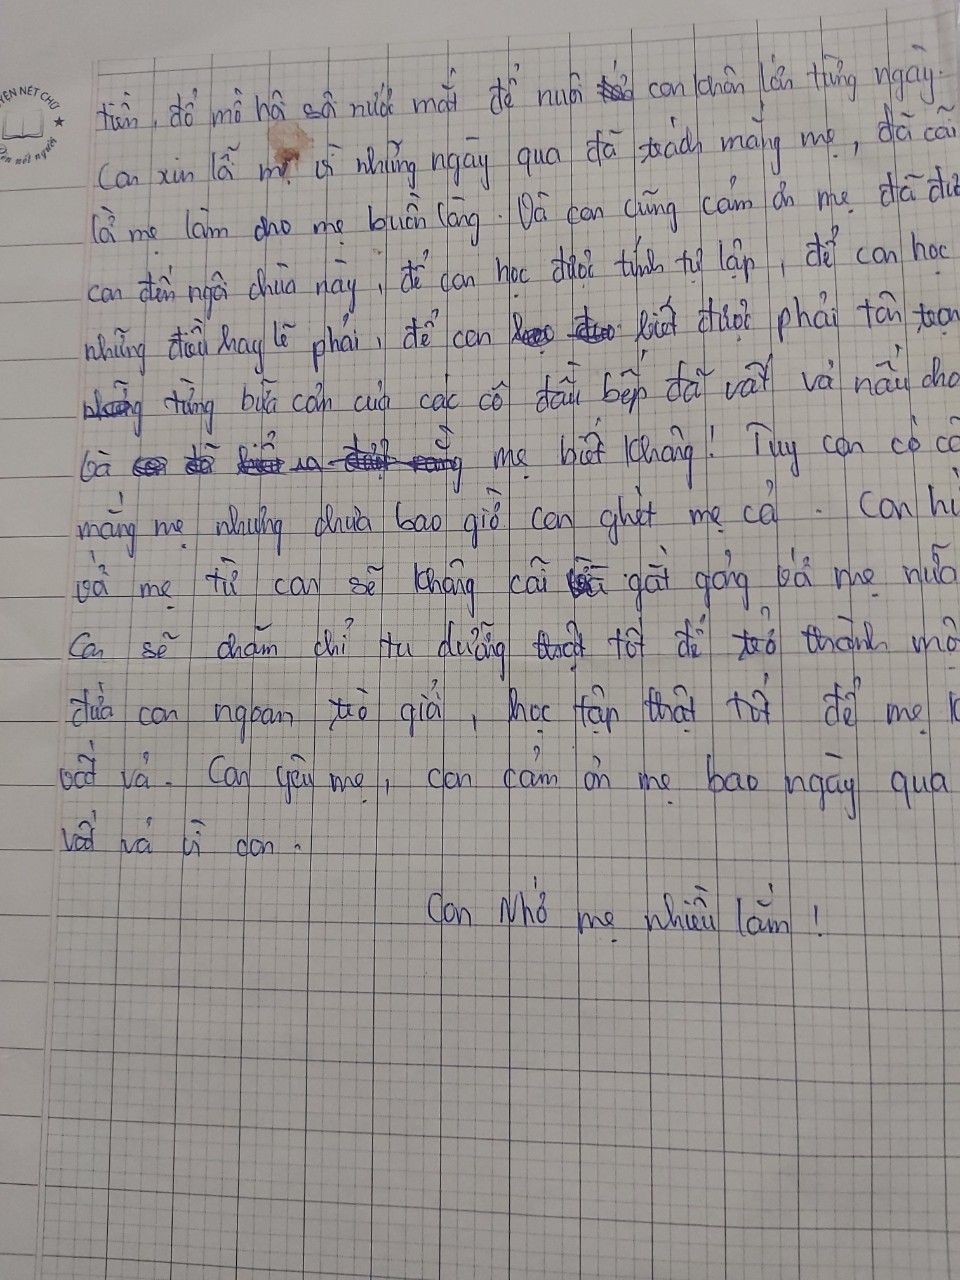 tiền, đổ mồ hôi sôi nước mắt để nuôi con khôn lớn từng ngày.
Con xin lỗi mẹ vì những ngày qua đã trách mắng mẹ, đã cãi
lời mẹ làm cho mẹ buồn lòng. Và con cũng cảm ơn mẹ đã đư
con đến ngôi chùa này, để con học được tính tự lập, để con học
những điều hay lẽ phải, để con biết được phải tôn trọn
từng bữa cơm của các cô đầu bếp đã vất vả nấu cho
và mẹ biết không! Tuy con có cã
mắng mẹ nhưng chưa bao giờ con ghét mẹ cả. Con hứ
với mẹ từ con sẽ không cãi gắt gỏng với mẹ nữa
Con sẽ chăm chỉ tu dưỡng tốt để trở thành mộ
đứa con ngoan trò giỏi, học tập thật tốt để mẹ k
vất vả. Con yêu mẹ, con cảm ơn mẹ bao ngày qua
vất vả vì con.
Con Nhớ mẹ nhiều lắm!